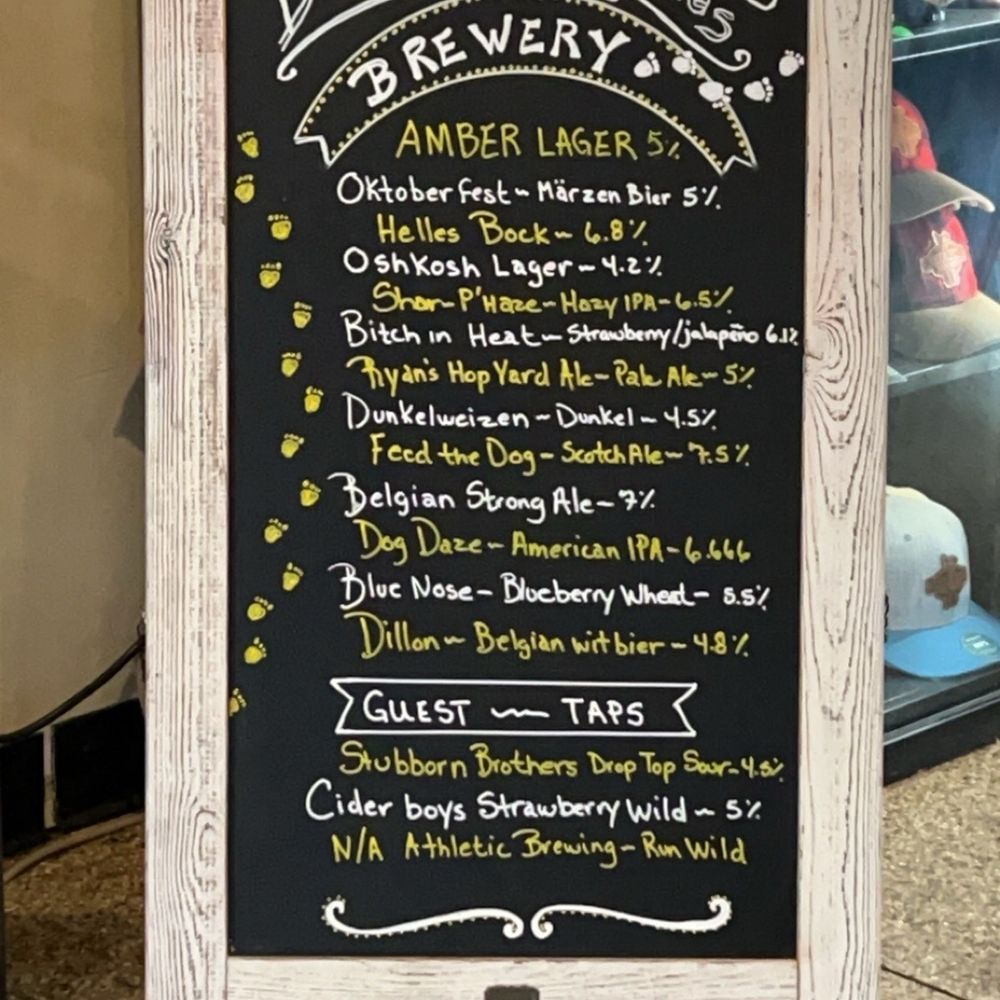 BREWERY
AMBER LAGER 5%
Oktoberfest ~ Märzen Bier 5%
Helles Bock ~ 6.8%
Oshkosh Lager ~ 4.2%
Shar-P'Haze ~ Hazy IPA - 6.5%
Bitch in Heat ~ Strawberry/jalapeño 6.1%
Ryan's Hop Yard Ale - Pale Ale ~ 5%
Dunkelweizen ~ Dunkel ~ 4.5%
Feed the Dog - Scotch Ale ~ 7.5%
Belgian Strong Ale - 7%
Dog Daze ~ American IPA - 6.666
Blue Nose - Blueberry Wheat - 5.5%
Dillon ~ Belgian witbier ~ 4.8%
GUEST ~ TAPS
Stubborn Brothers Drop Top Sour - 4.5%
Cider boys Strawberry Wild ~ 5%
N/A Athletic Brewing - Run Wild